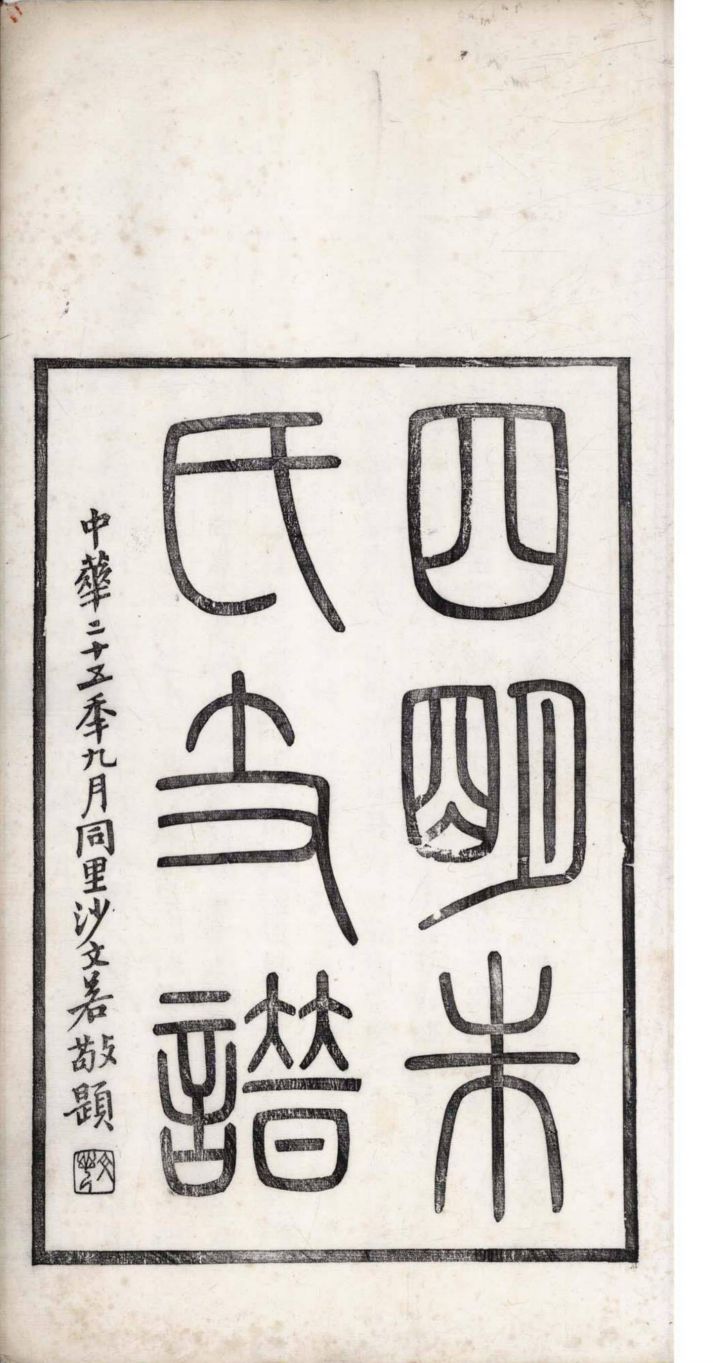 四明朱
氏支譜
中華二十五年九月同里沙文若敬題